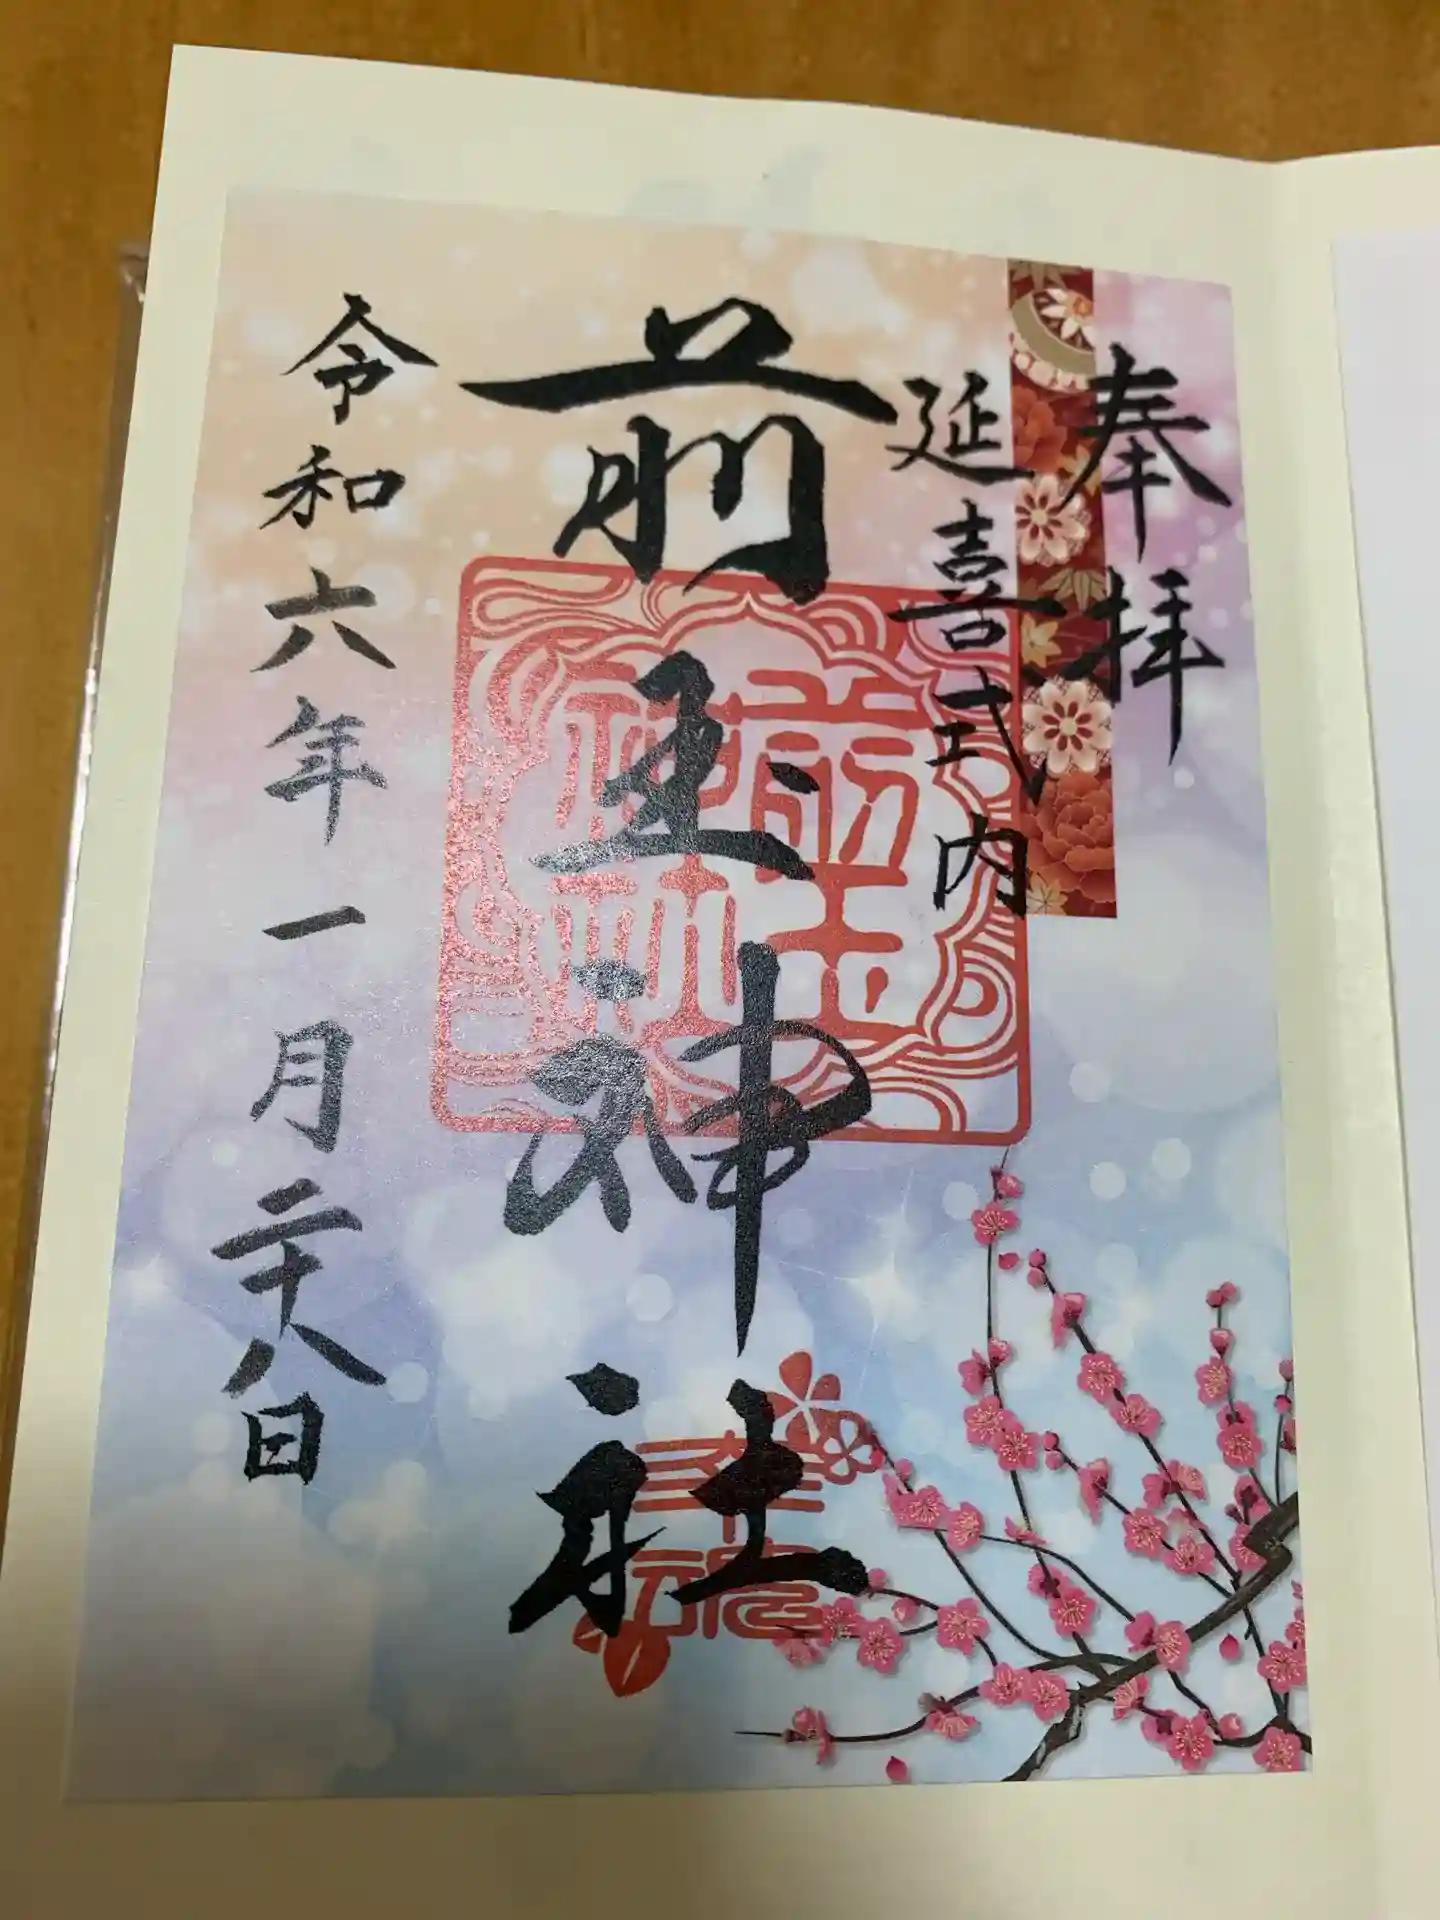 奉拝
延喜式内
前玉神社
前玉
神社
令和六年一月二十八日